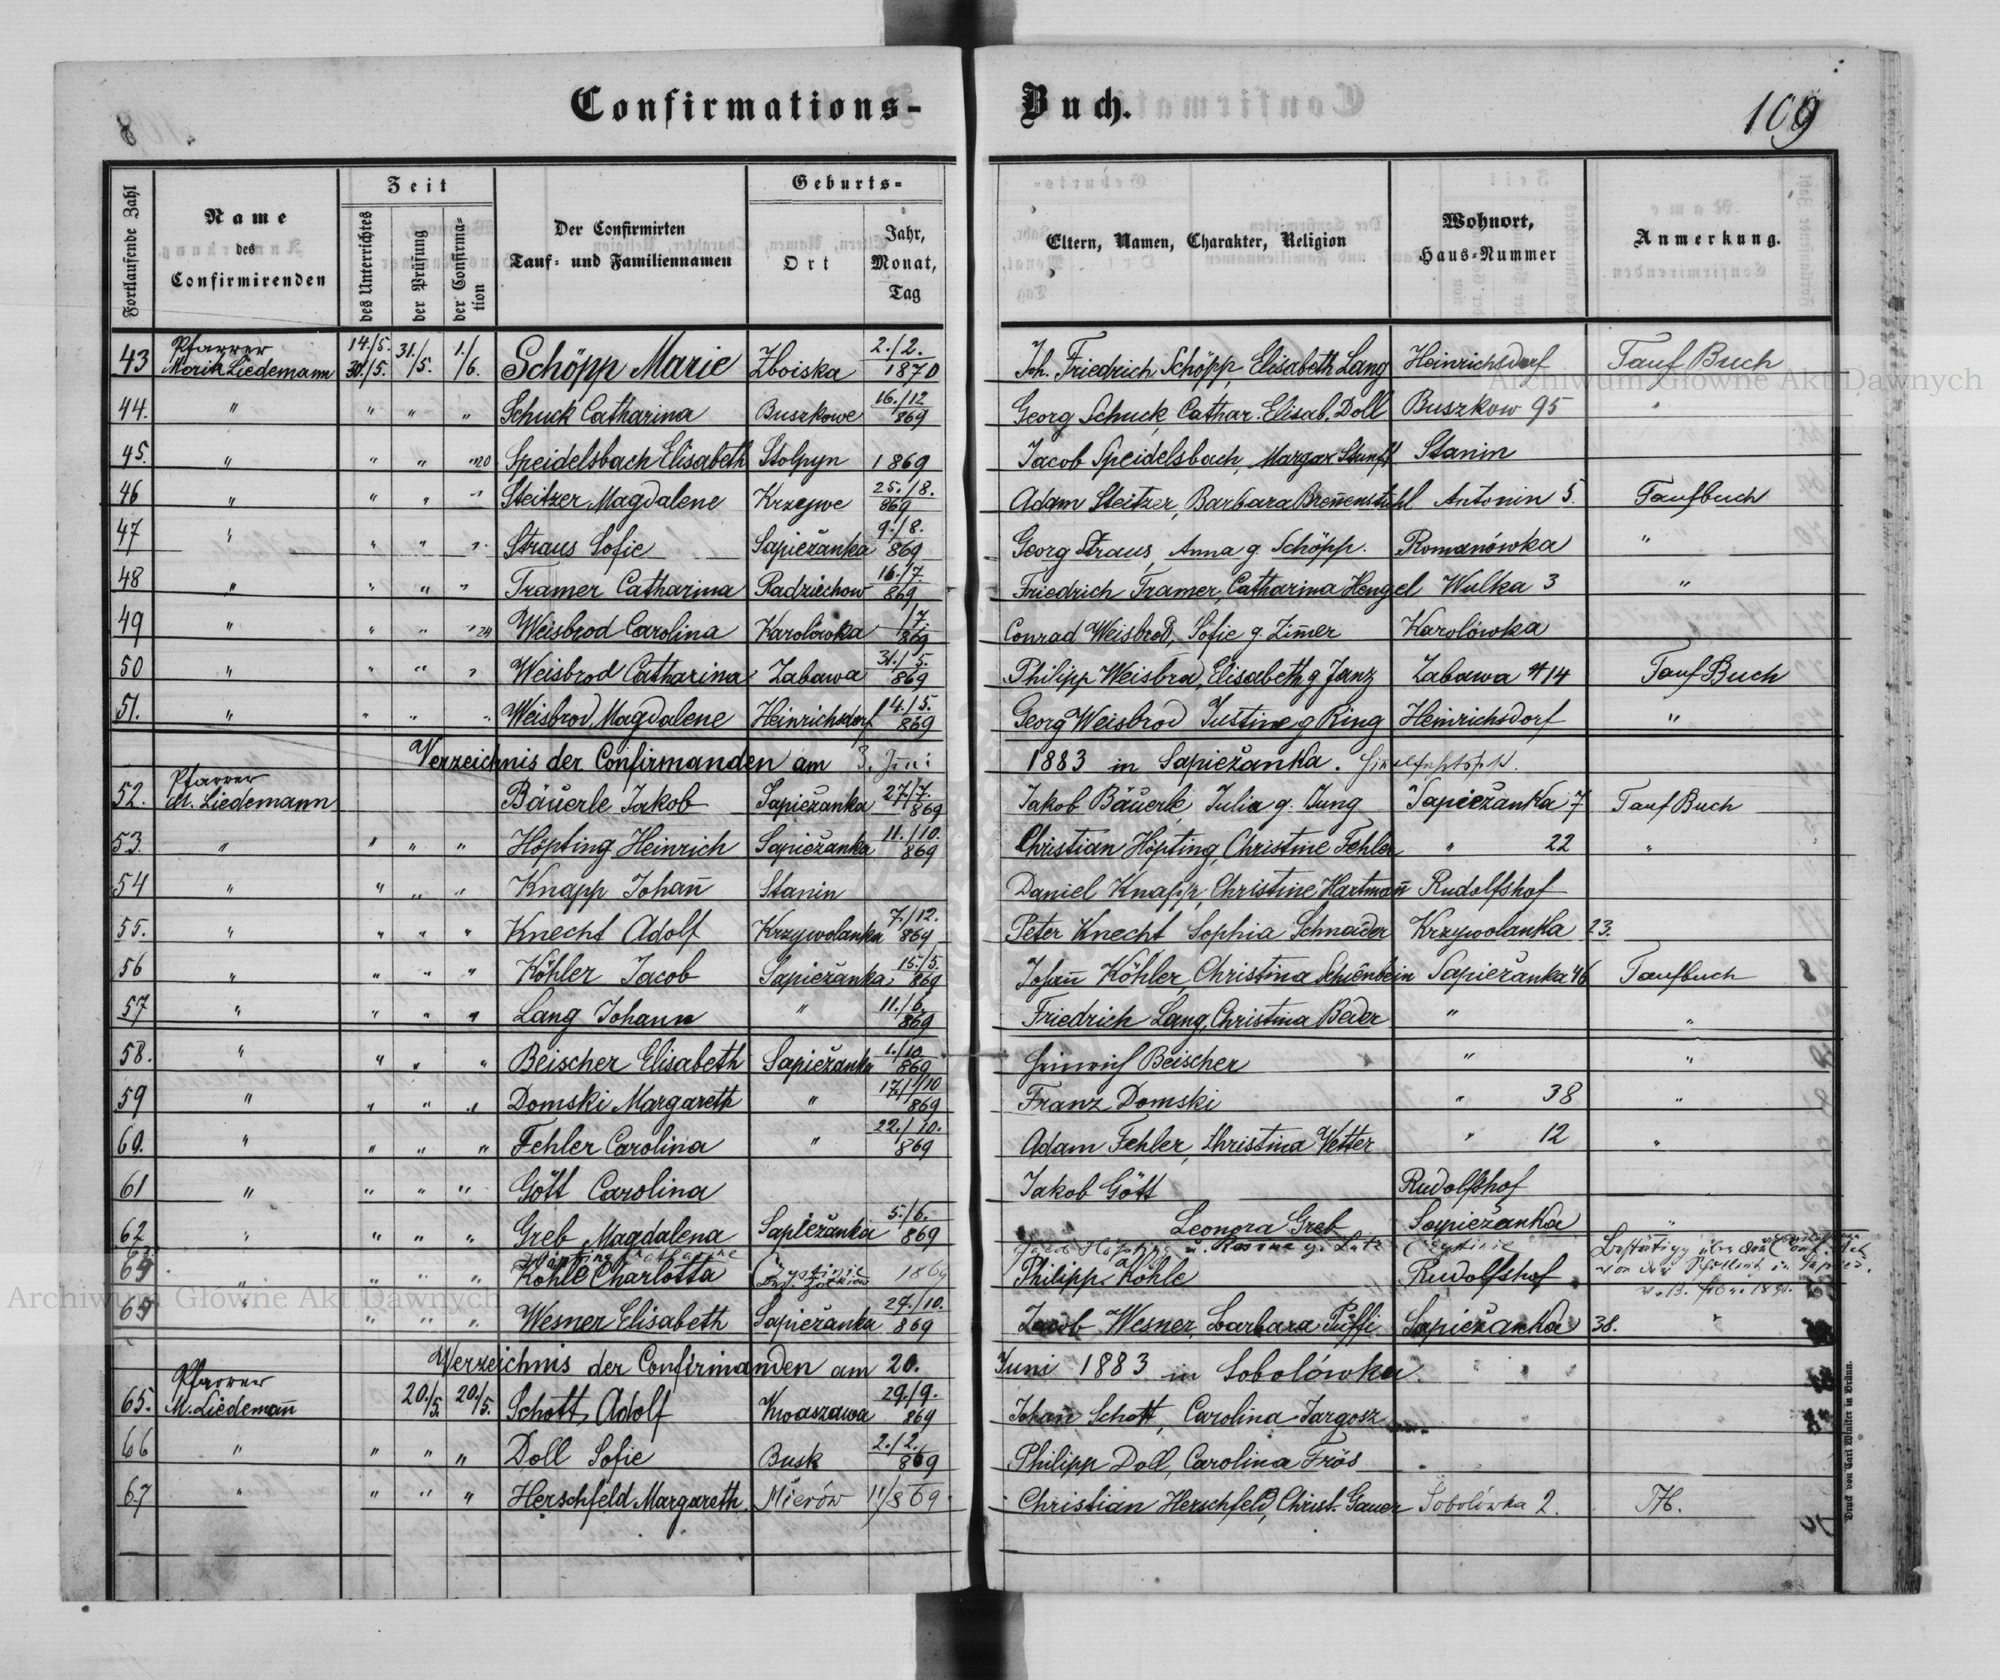 Confirmations-Buch.
109
Fortlaufende Zahl
Name des Confirmirenden
Zeit
des Unterrichtes
der Prüfung
der Confirmation
Der Confirmirten Tauf- und Familiennamen
Geburts-
Ort
Jahr, Monat, Tag
Eltern, Namen, Charakter, Religion
Wohnort, Haus-Nummer
Anmerkung.
43 Pfarrer Moritz Liedemann 14./5. 30./5. 31./5. 1./6. Schöpp Marie Zboiska 2./2. 1870 Joh. Friedrich Schöpp, Elisabeth Lang Heinrichsdorf Tauf Buch
44. " " " " Schuck Catharina Buszkowe 16./12 869 Georg Schuck, Cathar. Elisab. Doll Buszkow 95 "
45. " " " " 20 Speidelsbach Elisabeth Stolpyn 1869 Jacob Speidelsbach, Margar Stumpf Stanin
46 " " " " Steitzer Magdalene Krzywe 25./8. 869 Adam Steitzer, Barbara Breñenstuhl Antonin 5. Taufbuch
47 " " " " Straus Sofie Sapieżanka 9./8. 869 Georg Straus, Anna g. Schöpp. Romanówka "
48 " " " " Tramer Catharina Radziechow 16./7 869 Friedrich Tramer, Catharina Hengel Wulka 3 "
49 " " " " 24 Weisbrod Carolina Karolówka 17. 869 Conrad Weisbrod, Sofie g. Zim̄er Karolówka
50 " " " " Weisbrod Catharina Zabawa 31./5. 869 Philipp Weisbrod, Elisabeth g Janz Zabawa #14 Tauf Buch
51. " " " " Weisbrod, Magdalene Heinrichsdorf 14./5. 869 Georg Weisbrod Justine g Ring Heinrichsdorf "
Verzeichnis der Confirmanden am 3. Juni 1883 in Sapieżanka.
52. Pfarrer M. Liedemann Bäuerle Jakob Sapieżanka 27/7. 869 Jakob Bäuerle, Julia g. Jung Sapieżanka 7 Tauf Buch
53. " " " " Höpting Heinrich Sapieżanka 11./10. 869 Christian Höpting, Christine Fehler " 22 "
54 " " " " Knapp Johañ Stanin Daniel Knapp, Christine Hartmañ Rudolfshof
55. " " " " Knecht Adolf Krzywolanka 7./12. 869 Peter Knecht Sophia Schnaider Krzywolanka 23.
56 " " " " Köhler Jacob Sapieżanka 15./5. 869 Johañ Köhler, Christina Schienbein Sapieżanka 46 Taufbuch
57 " " " " Lang Johann " 11./6. 869 Friedrich Lang, Christina Beder " "
58. " " " " Beischer Elisabeth Sapieżanka 1./10 869 Heinrich Beischer " "
59 " " " " Domski Margareth " 17./10 869 Franz Domski " 38 "
60. " " " " Fehler Carolina " 22./10. 869 Adam Fehler, Christina Vetter " 12 "
61 " " " " Gött Carolina Jakob Gött Rudolfshof
62 " " " " Greb Magdalena Sapieżanka 5./6. 869 Leonora Greb Sapieżanka "
63 Höpting Katharine Jacob Höpting u. Rosine g. Lutz
64 " " " " Köhle Charlotta 1869 Philipp Köhle Rudolfshof
" " " " Wesner Elisabeth Sapieżanka 27./10. 869 Jacob Wesner, Barbara Püffi Sapieżanka 38. "
Verzeichnis der Confirmanden am 20. Juni 1883 in Sobolówka.
65. Pfarrer M. Liedemañ 20./5. 20./5. Schott, Adolf Kwaszawa 29./9. 869 Johañ Schott, Carolina Jargosz
66 " " " " Doll Sofie Busk 2./2. 869 Philipp Doll, Carolina Frös
67 " " " " Herschfeld Margareth. Mierów 11/869 Christian Herschfeld, Christ. Gauer Sobolówka 2. Tb.
Druck von Carl Winiker in Brünn.
Archiwum Główne Akt Dawnych
Archiwum Główne Akt Dawnych